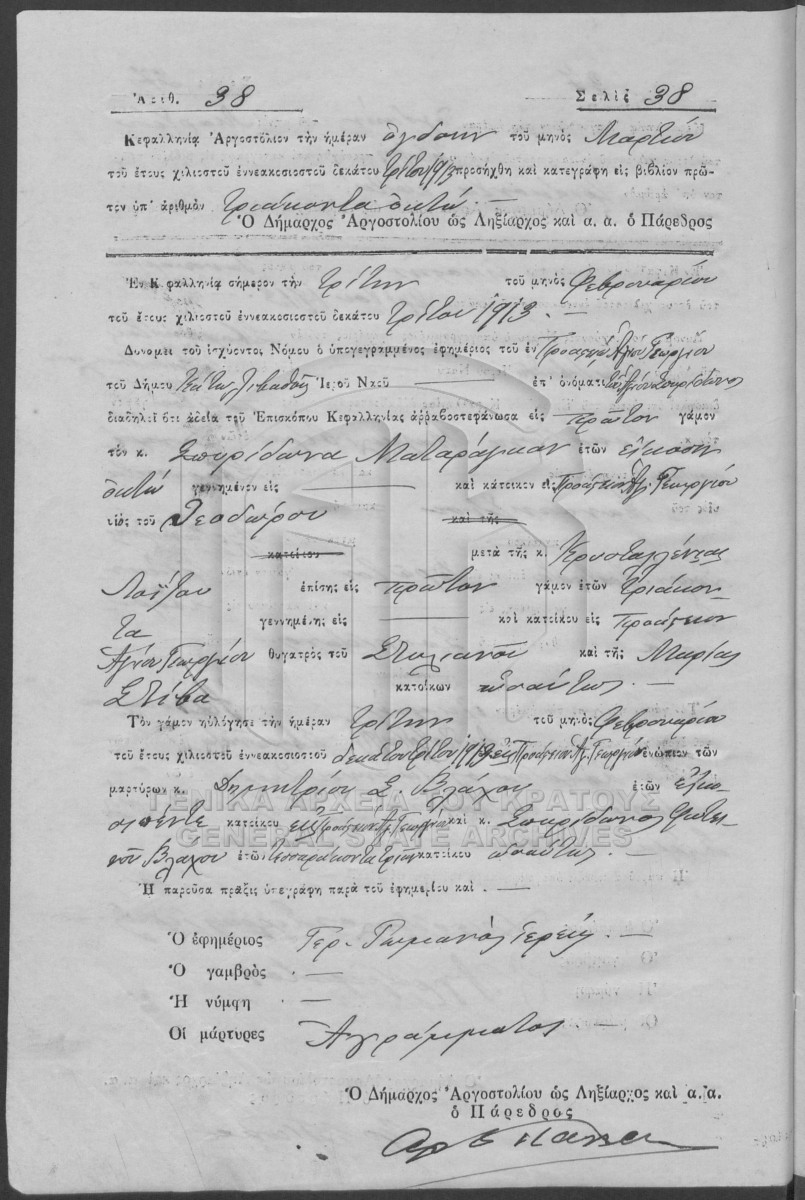 Ἀριθ. 38 Σελὶς 38
Κεφαλληνίᾳ Ἀργοστόλιον τὴν ἡμέραν ὀγδόην τοῦ μηνὸς Μαρτίου
τοῦ ἔτους χιλιοστοῦ ἐννεακοσιοστοῦ δεκάτου τρίτου 1913 προσήχθη καὶ κατεγράφη εἰς βιβλίον πρῶ-
τον ὑπ' ἀριθμὸν τριάκοντα ὀκτώ. —
Ὁ Δήμαρχος Ἀργοστολίου ὡς Ληξίαρχος καὶ α. α. ὁ Πάρεδρος
Ἐν Κεφαλληνίᾳ σήμερον τὴν τρίτην τοῦ μηνὸς Φεβρουαρίου
τοῦ ἔτους χιλιοστοῦ ἐννεακοσιοστοῦ δεκάτου τρίτου 1913. —
Δυνάμει τοῦ ἰσχύοντος Νόμου ὁ ὑπογεγραμμένος ἐφημέριος τοῦ ἐν Προαστείῳ Ἁγίου Γεωργίου
τοῦ Δήμου Ἱεροῦ Ναοῦ — ἐπ' ὀνόματι
διαδηλοῖ ὅτι ἀδείᾳ τοῦ Ἐπισκόπου Κεφαλληνίας ἀρραβοστεφάνωσα εἰς πρῶτον γάμον
τὸν κ. Σπυρίδωνα Ματαράγκαν ἐτῶν εἴκοσιν
ὀκτώ γεννημένον εἰς — καὶ κάτοικον εἰς Προάστειον Ἁγ. Γεωργίου
υἱὸς τοῦ Θεοδώρου καὶ τῆς
κατοίκου μετὰ τῆς κ. Κρυσταλλένιας
ἐπίσης εἰς πρῶτον γάμον ἐτῶν τριάκον-
τα γεννημένης εἰς — καὶ κατοίκου εἰς Προάστειον
Ἁγίου Γεωργίου θυγατρὸς τοῦ Στυλιανοῦ καὶ τῆς Μαρίας
κατοίκων ὡσαύτως. —
Τὸν γάμον ηὐλόγησε τὴν ἡμέραν τρίτην τοῦ μηνὸς Φεβρουαρίου
τοῦ ἔτους χιλιοστοῦ ἐννεακοσιοστοῦ δεκάτου τρίτου 1913 εἰς Προάστειον Ἁγ. Γεωργίου ἐνώπιον τῶν
μαρτύρων κ. Δημητρίου Σ. Βλάχου ἐτῶν εἴκο-
σι πέντε κατοίκου εἰς Προάστειον Ἁγ. Γεωργίου καὶ κ. Σπυρίδωνος Φωτει-
νοῦ Βλάχου ἐτῶν τεσσαράκοντα τριῶν κατοίκου ὡσαύτως. —
Ἡ παροῦσα πρᾶξις ὑπεγράφη παρὰ τοῦ ἐφημερίου καὶ . —
ΓΕΝΙΚΑ ΑΡΧΕΙΑ ΤΟΥ ΚΡΑΤΟΥΣ
GENERAL STATE ARCHIVES
Ὁ ἐφημέριος Γερ. Ρωμανὸς Ἱερεύς. —
Ὁ γαμβρὸς . —
Ἡ νύμφη . —
Οἱ μάρτυρες Ἀγράμματοι. —
Ὁ Δήμαρχος Ἀργοστολίου ὡς Ληξίαρχος καὶ α.α.
ὁ Πάρεδρος